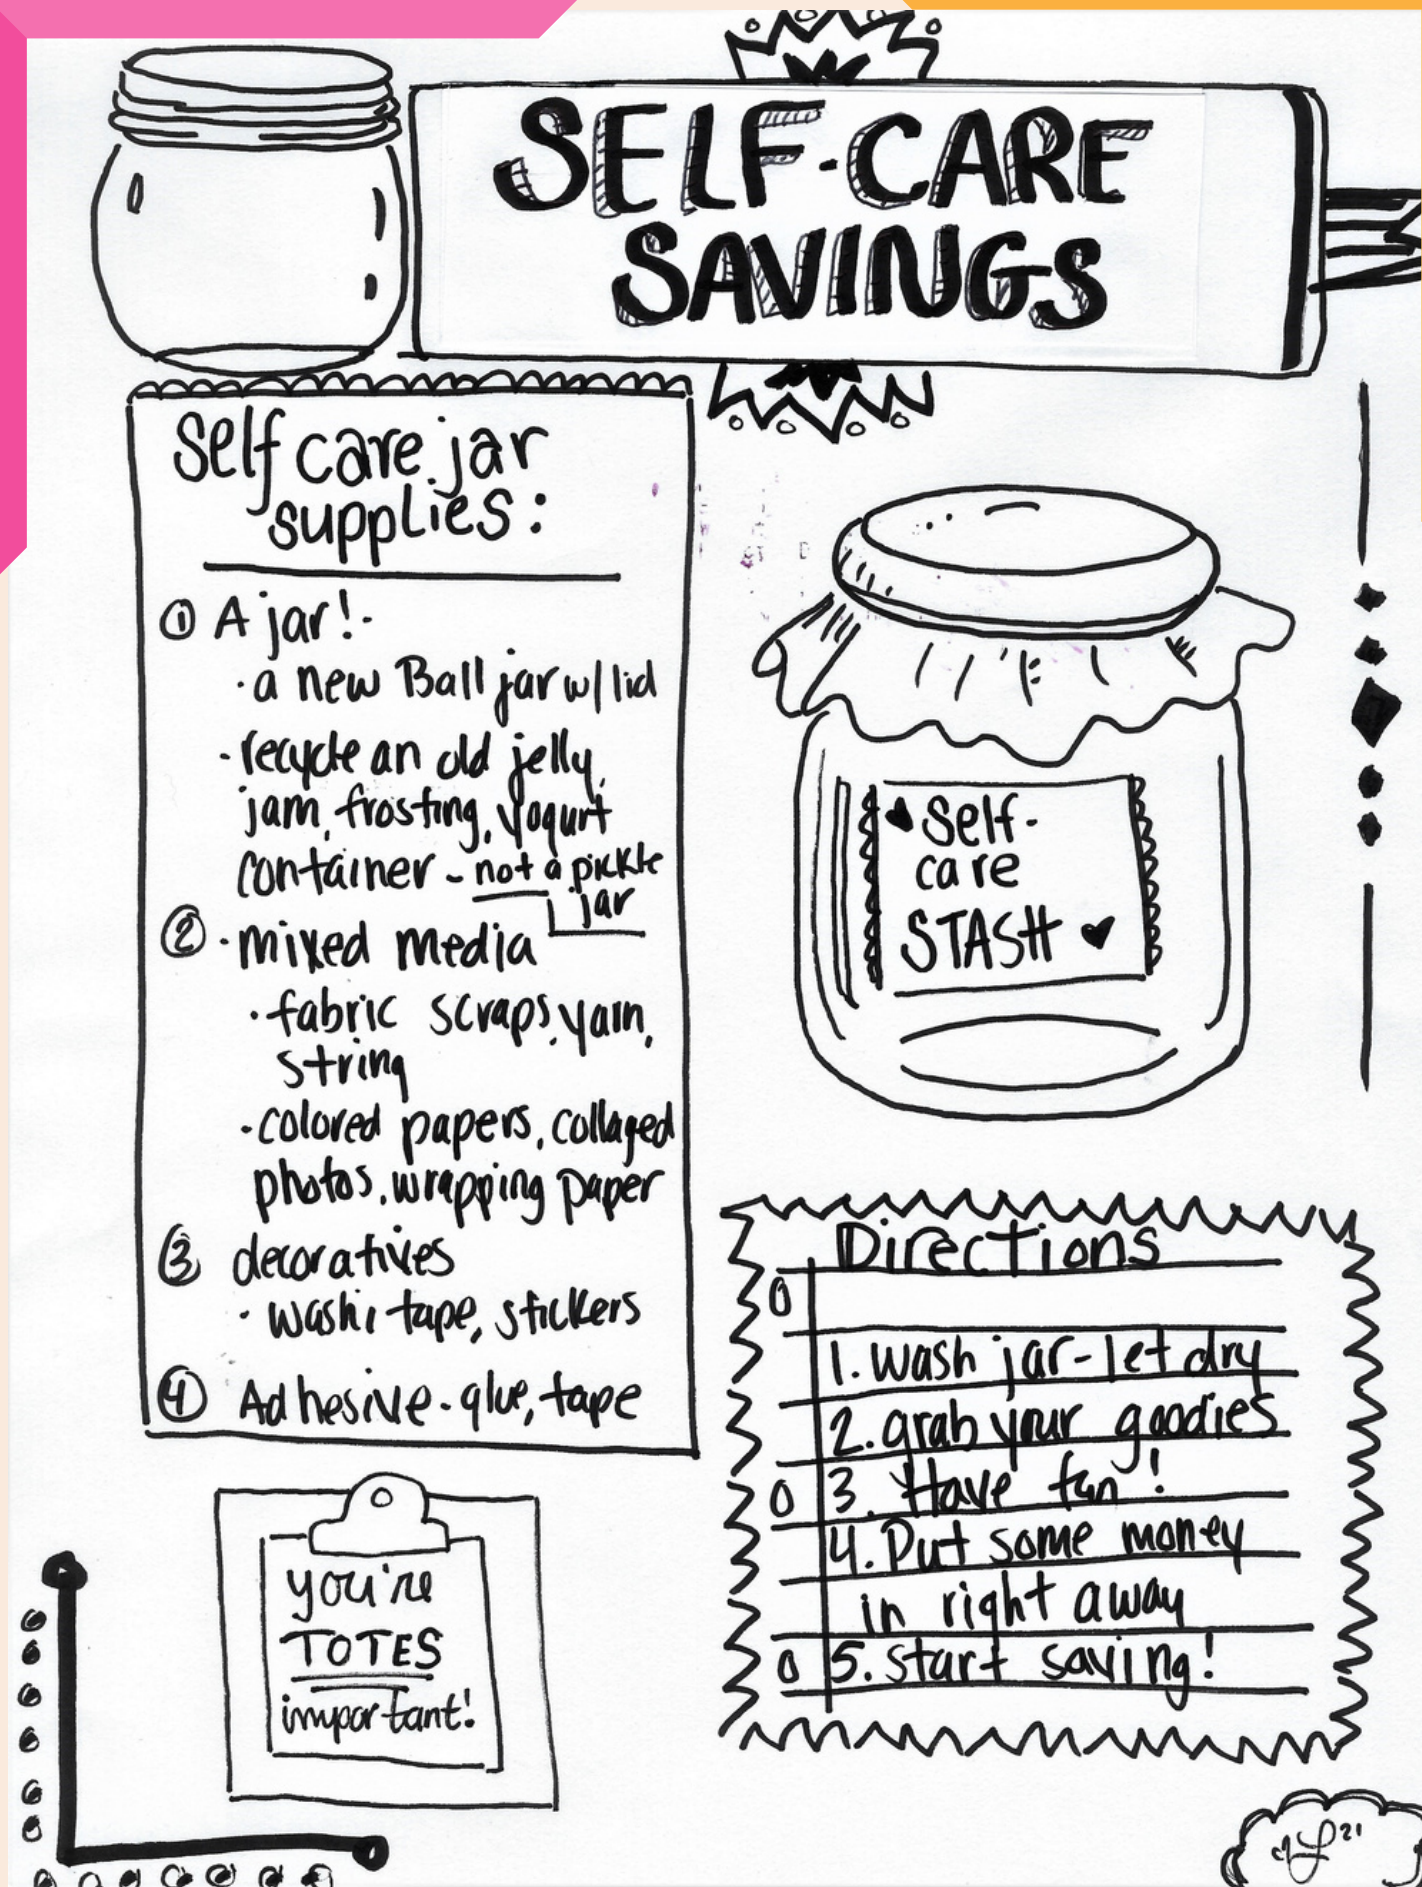 SELF-CARE
SAVINGS
Self care jar
supplies:
① A jar!
· a new Ball jar w/ lid
· recycle an old jelly,
jam, frosting, yogurt
container - not a pickle
jar
② · mixed media
· fabric scraps, yarn,
string
· colored papers, collaged
photos, wrapping paper
③ decoratives
· washi tape, stickers
④ Adhesive - glue, tape
you're
TOTES
important!
♥ Self-
care
STASH ♥
Directions
1. wash jar - let dry
2. grab your goodies
3. Have fun!
4. Put some money
in right away
5. start saving!
21